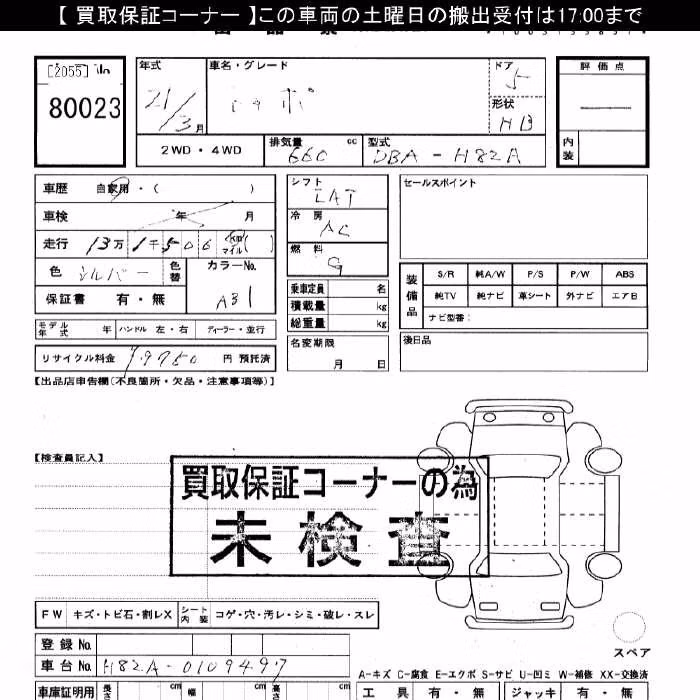 【 買取保証コーナー 】この車両の土曜日の搬出受付は17:00まで
[2055]
80023
年式
21/3月
車名・グレード
トッポ
ドア
5
形状
HB
評価点
内装
2WD・4WD
排気量
660
cc
型式
DBA-H82A
車歴 自家用・( )
車検 年 月
走行 13万1千506 km マイル ( )
色 シルバー 色替
カラーNo.
A31
保証書 有・無
モデル年式 年 ハンドル 左・右 ディーラー・並行
リサイクル料金 円 預託済
シフト
冷房
AC
燃料
G
乗車定員 名
積載量 kg
総重量 kg
名変期限
月 日
セールスポイント
装備品
S/R 純A/W P/S P/W ABS
純TV 純ナビ 革シート 外ナビ エアB
ナビ型番:
後日品
【出品店申告欄(不良箇所・欠品・注意事項等)】
【検査員記入】
買取保証コーナーの為
未検査
FW キズ・トビ石・割レX シート内装 コゲ・穴・汚レ・シミ・破レ・スレ
スペア
登録 No.
車台 No. H82A-0109497
A-キズ C-腐食 E-エクボ S-サビ U-凹ミ W-補修 XX-交換済
車庫証明用 長さ cm 幅 cm 高さ cm
工具 有・無 ジャッキ 有・無